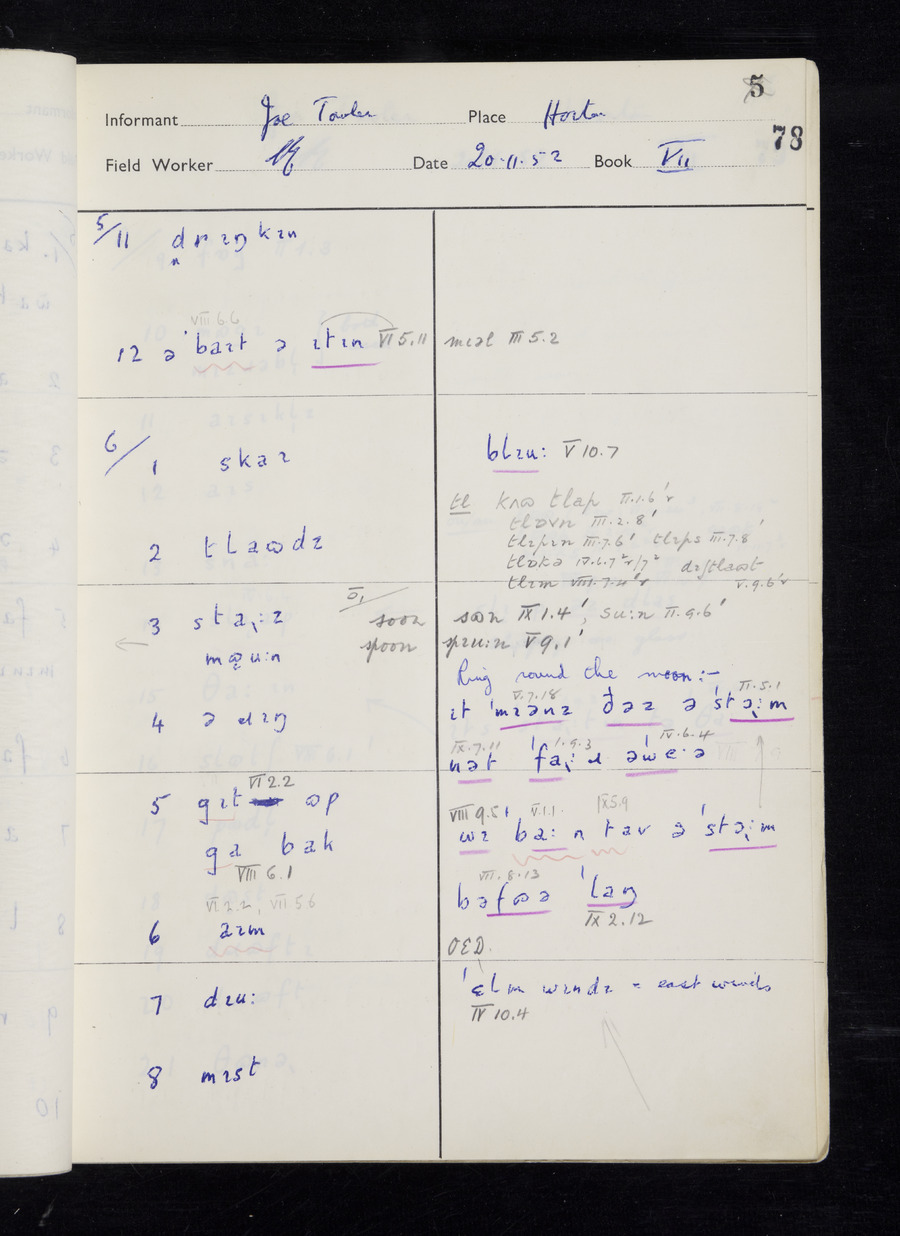 5
78
Informant Joe Place Horton
Field Worker Date 20.11.52 Book VII
5/11 drɪŋkɪn
VIII 6.6
12 ə ˈbaɪt ə ɪtɪn VI 5.11 mɪəl III 5.2
6/1 skaɪ blɪu: V 10.7
tl knɒ tlap II.1.6ʹ
tlɒvn III.2.8ʹ
2 tlaɷdɪ tlɪpɪn III.7.6ʹ tlɪps III.7.8ʹ
tlɪm VIII.7.4ʹ V.9.6ʹ
3 sta:z soon IX 1.4ʹ, su:n II.9.6ʹ
spoon spɪu:n V 9.1ʹ
mu:n
Ring round the moon:-
V.7.18 II.5.1
4 ə ɹɪŋ ɪt ˈmɪənz ðəz ə ˈstɔ:m
IX.7.11 1.9.3 IV.6.4
nət ˈfa: ɹ əˈwe·ə
VI 2.2
5 gɪt ɷp
VIII 9.5 V.1.1. IX 5.9
wɪ ba:n tav ə ˈstɔ:m
ga bak
VIII 6.1
VII.8.13
bəfɷə ˈlaŋ
IX 2.12
VI 2.2, VII 5.6
6 aɪm OED.
7 dɪu: ˈɛlm wɪndz = east winds
IV 10.4
8 mɪst